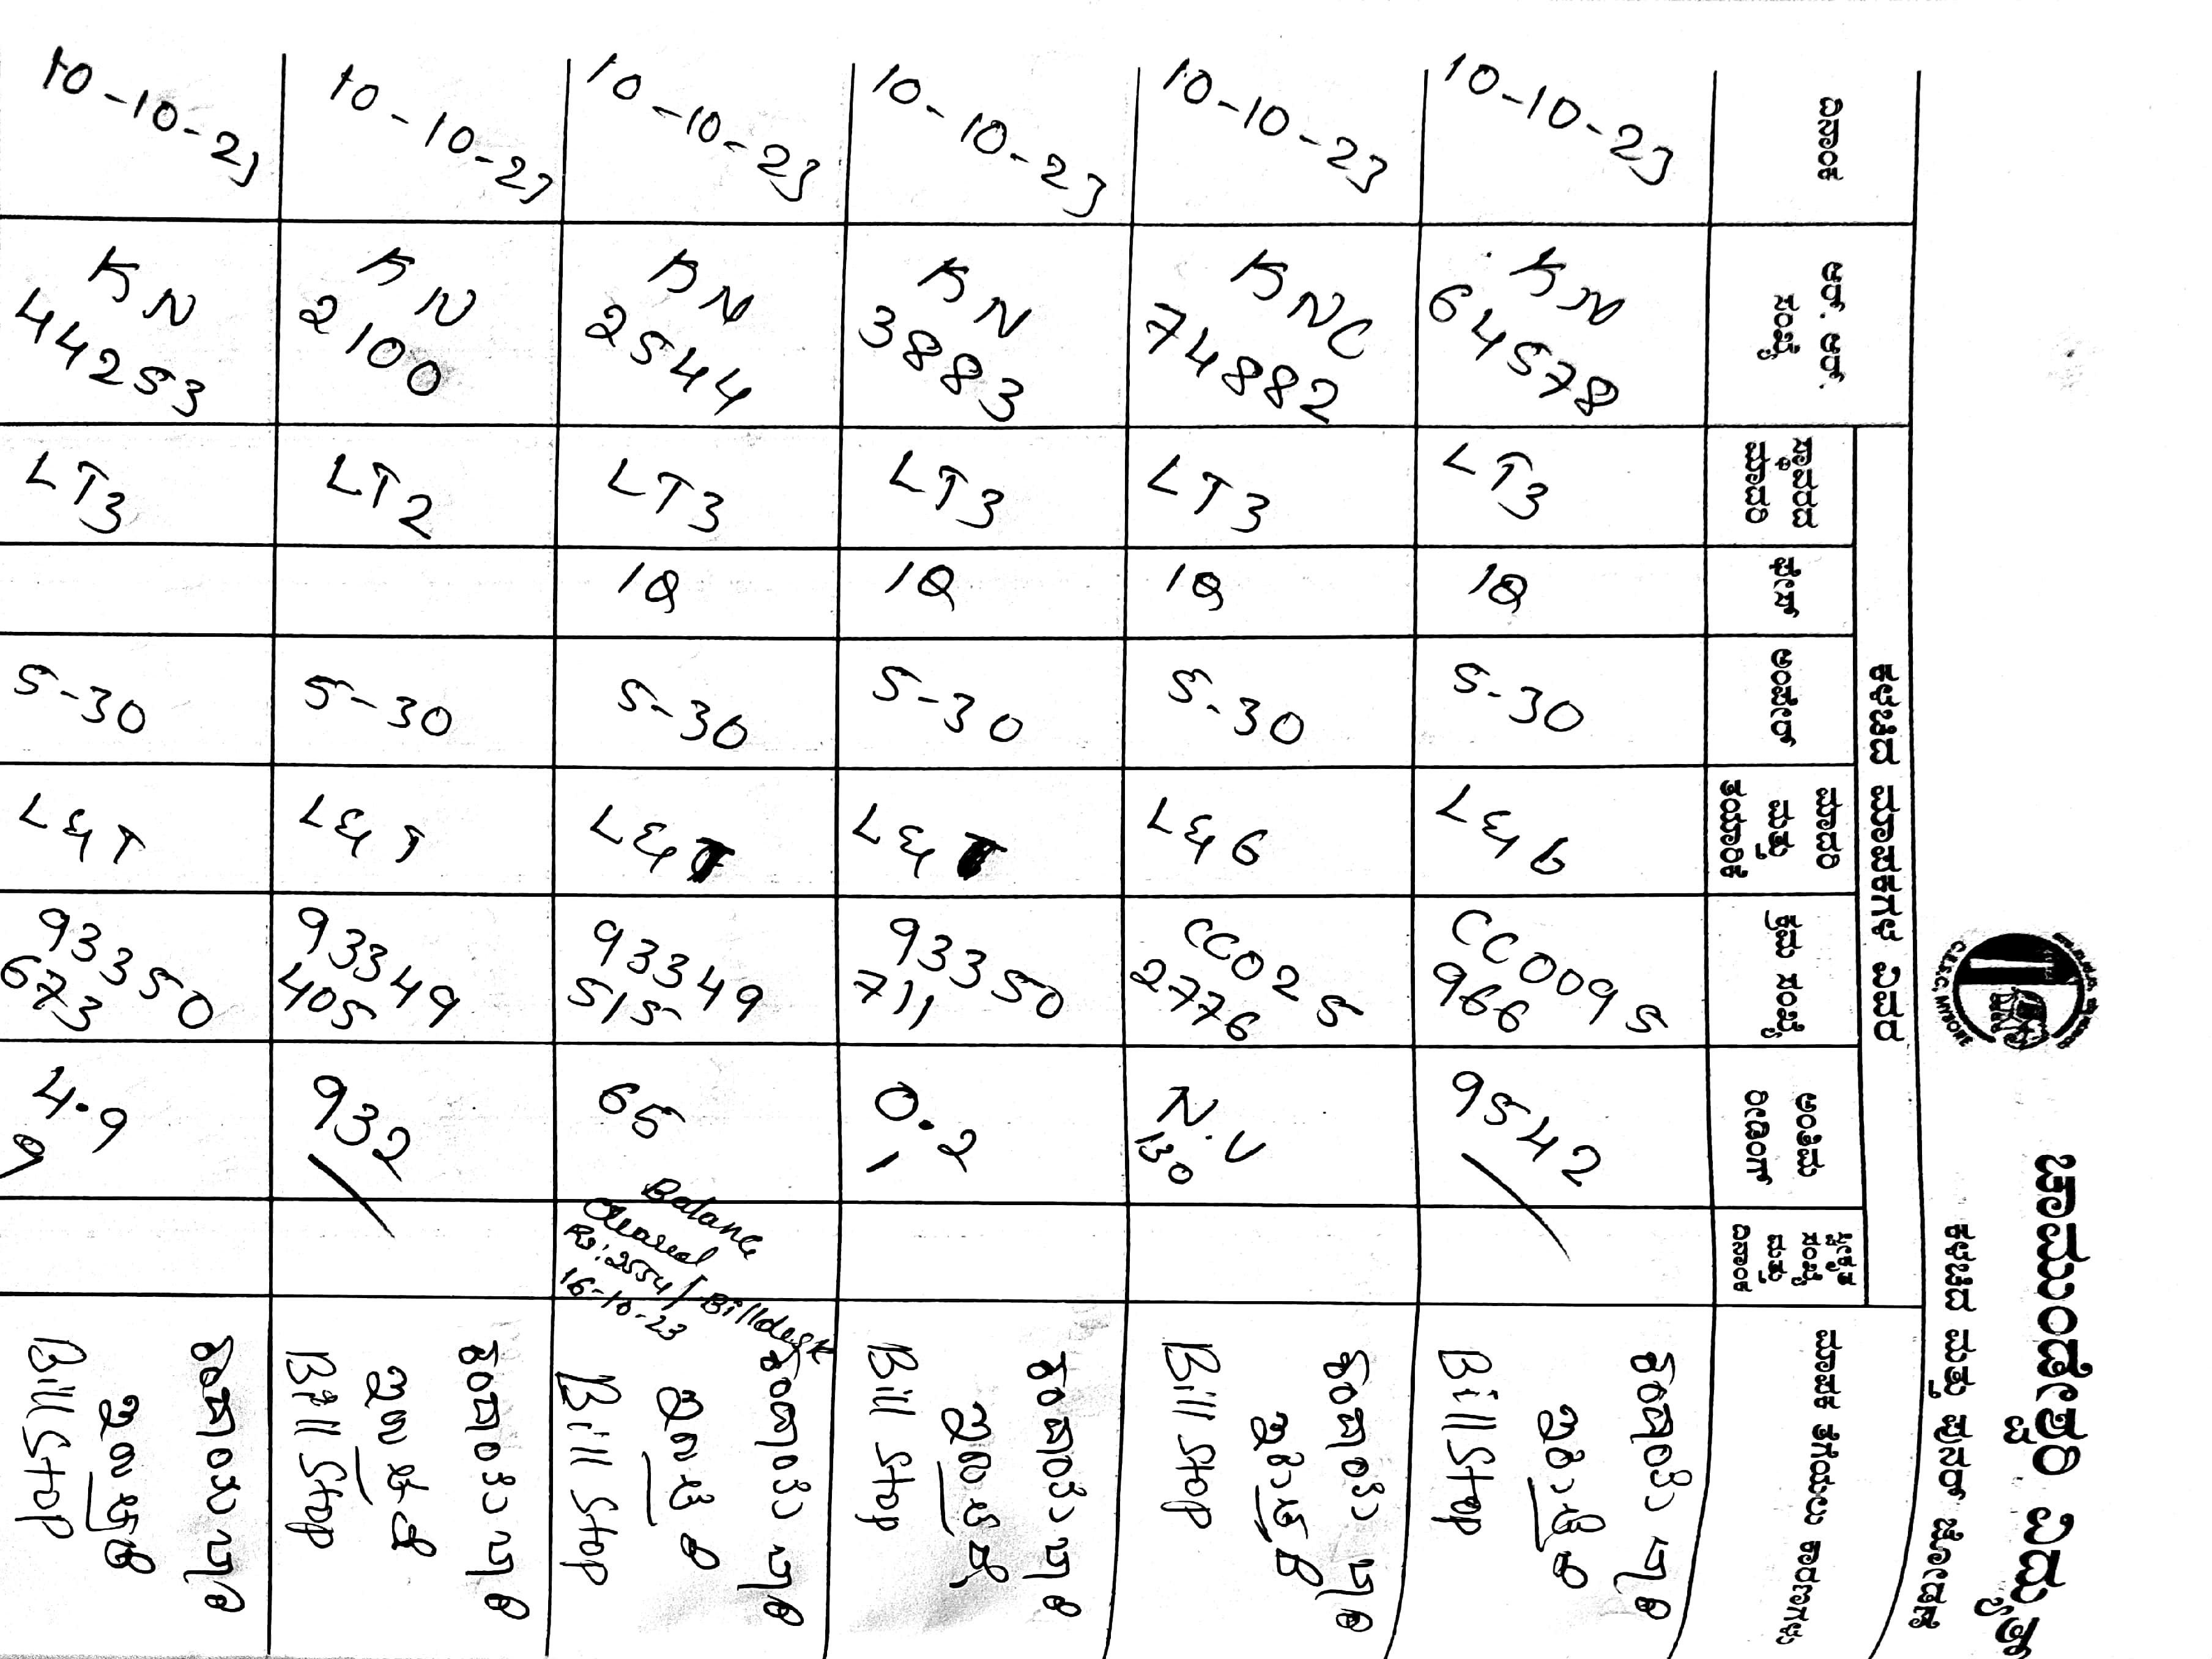 ಚಾಮುಂಡೇಶ್ವರಿ ವಿದ್ಯುತ್
ಕಳಚಿದ ಮತ್ತು ಪುನರ್ ಜೋಡಣೆ
C.E.S.C, MYSORE
ಕಳಚಿದ ಮಾಪಕಗಳ ವಿವರ
ದಿನಾಂಕ
ಆರ್. ಆರ್.
ಸಂಖ್ಯೆ
ಸ್ಥಾವರದ
ಮಾದರಿ
ಫೇಸ್
ಆಂಪೇರ್
ಮಾದರಿ
ಮತ್ತು
ತಯಾರಿಕೆ
ಕ್ರಮ ಸಂಖ್ಯೆ
ಅಂತಿಮ
ರೀಡಿಂಗ್
ಸಂಖ್ಯೆ
ಮತ್ತು
ದಿನಾಂಕ
ಮಾಪಕ ತೆಗೆಯಲು ಕಾರಣಗಳು
10-10-23
KN
64578
LT3
1Q
5-30
L&G
CC0095
966
9542
Bill Stop
10-10-23
KNC
74882
LT3
1Q
5-30
L&G
CC025
2776
N.V
130
Bill Stop
10-10-23
KN
3883
LT3
1Q
5-30
L&T
93350
711
0.2
Bill Stop
10-10-23
KN
2544
LT3
1Q
5-30
L&T
93349
515
65
Balance
Cleared
Rs:2554/- Billdesk
16-10-23
Bill Stop
10-10-23
KN
2100
LT2
5-30
L&T
93349
405
932
Bill Stop
10-10-23
KN
44253
LT3
5-30
L&T
93350
673
4.9
Bill Stop